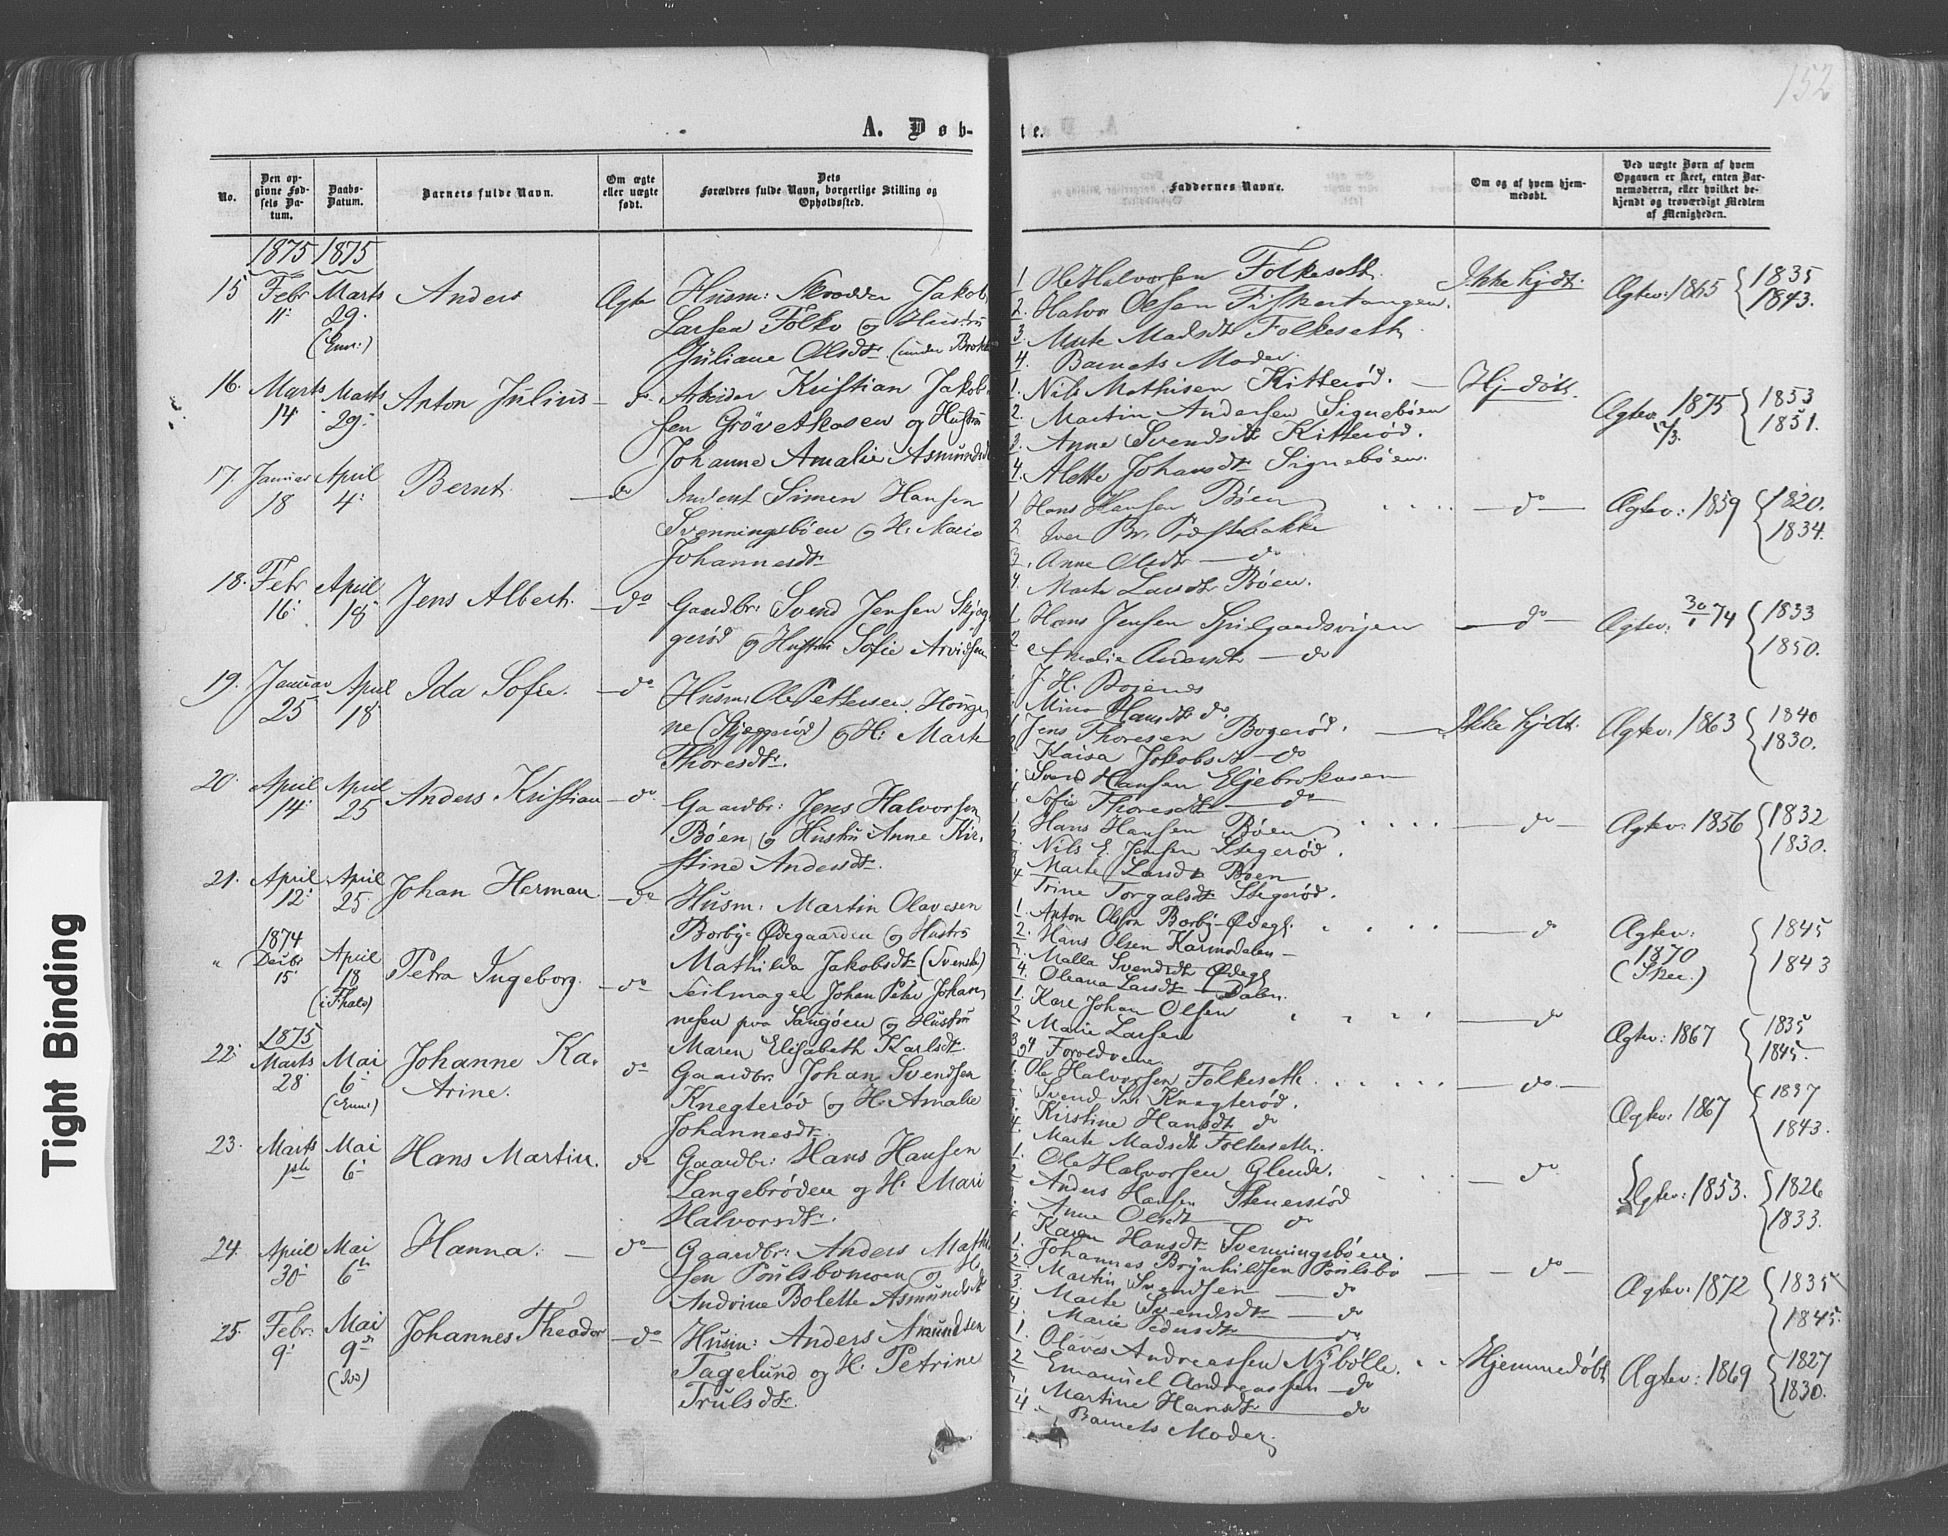 152
A. Døb-
te.
No.
Den opgivne Fødsels Datum.
Daabs-Datum.
Barnets fulde Navn.
Om ægte eller uægte født.
Dets Forældres fulde Navn, borgerlige Stilling og Opholdssted.
Faddernes Navne.
Om og af hvem hjemmedøbt.
Ved uægte Børn af hvem Opgaven er skeet, enten Barnemoderen, eller hvilket bekjendt og troværdigt Medlem af Menigheden.
1875 1875
15 Febr 11 Marts 29. Anders Ægte Husm: Skrædder Jakob
Larsen Folke og Hustru
Juliane Olsdt.
1. Ole Halvorsen Folkeseth.
2. Halvor Olsen Fiskertangen.
3. Marte Madsdt Folkeseth
4. Barnets Moder.
Ikke hjdt. Ægtev: 1865 { 1835 1843.
16. Marts 14 Marts 29 Anton Julius do Arbeider Kristian Jakob
sen Grøveskasen og Hustru
Johanne Amalie Asmundsdt
1. Nils Mathisen Kitterød.
2. Martin Andersen Signebøen
3. Anne Svendsdt Kitterød.
4. Alette Johansdt Signebøen.
Hj-døbt. Ægtev 1875 { 1853 1851.
17. Januar 18 April 4 Bernt do Simen Hansen
Svenningsbøen og H. Marie
Johannesdt
1 Hans Hansen Bøen
2 Iver Præstebakke
3. Anne Olsdt do
4. Marte Larsdt Bøen.
do Ægtev: 1859 { 1820. 1834.
18. Febr 16 April 18 Jens Albert. do Gaardbr: Svend Jensen Skjøg
gerød og Hustru Sofie Arvidsen
1 Hans Jensen Spilgaardsvigen
2 Amalie Andersdt do
J. H. Bojenes
Mina Hansdt do.
do Ægtev: 30/1 74 { 1833 1850.
19. Januar 25 April 18 Ida Sofie. do Husm: Ole Pettersen. Hougene
(Skjøggerød) og H: Marte
Thoresdt.
1 Jens Thoresen Bogerød.
Kaisa Jakobsdt do
Svend Hansen Elgebrokasen
Sofie Thoresdt do
Ikke hjdt. Ægtev: 1863 { 1840 1830.
20 April 14 April 25 Anders Kristian do. Gaardbr: Jens Halvorsen
Bøen og Hustru Anne Kir-
stine Andersdt.
1. Hans Hansen Bøen
Nils E. Jensen Stegerød.
Marte Larsdt Bøen
4 Trine Torgalsdt Stegerød.
do Ægtev: 1856 { 1832 1830.
21. April 12 April 25 Johan Herman do Husm: Martin Olavesen
Borby-Ødegaarden og Hustru
Mathilda Jakobsdt (Svensk)
1. Anton Olson Borby-Ødegd.
2. Hans Olsen Karmodalen
3. Malla Svendsdt Ødegd
4. Oleana Larsdt Dalen.
do Ægtev: 1870 { 1845 1843
" 1874 Decbr 15 April 18 Petra Ingeborg. do Seilmager Johan Peter Johan-
nesen paa Saugøen og Hustru
Maren Elisabeth Karlsdt
1. Karl Johan Olsen
2 Marie Larsen
3 og 4 Forældrene
do Ægtev: 1867 { 1835 1845.
1875
22. Marts 28 Mai 6 Johanne Ka-
trine. do Gaardbr. Johan Svendsen
Knegterød og H: Amalie
Johannesdt.
1. Ole Halvorsen Folkeseth
Svend Knegterød.
Kirstine Hansdt do
4. Marte Madsdt Folkeseth.
do Ægtev: 1867 { 1837 1843.
23. Marts Mai 6 Hans Martin. do Gaardbr: Hans Hansen
Langebrøden og H: Mari
Halvorsdt.
1. Ole Halvorsen Glende.
2 Anders Hansen Stenersrød
Anne Olsdt do
Karen Hansdt Svenningsbøen.
do Ægtev: 1853. { 1826 1833.
24. April 30 Mai 6 Hanna. do Gaardbr: Anders Math
sen Poulsbomoen og H
Andrine Bolette Asmundsdt
1. Johannes Brynhildsen Poulsbo
2 Martin Svendsen do
3. Marte Svendsdt do
4. Marie Pedersdt do
do Ægtev: 1872 { 1835 1845.
25. Febr. 9 Mai 9 Johannes Theodor do Husm: Anders Amundsen
Fagelund og H: Petrine
Trulsdt.
1. Olaves Andreassen Nybølle.
2 Emanuel Andreassen do
3 Martine Hansdt do
4. Barnets Moder.
Hjemmedøbt Ægtev: 1869 { 1827 1830.
Tight Binding